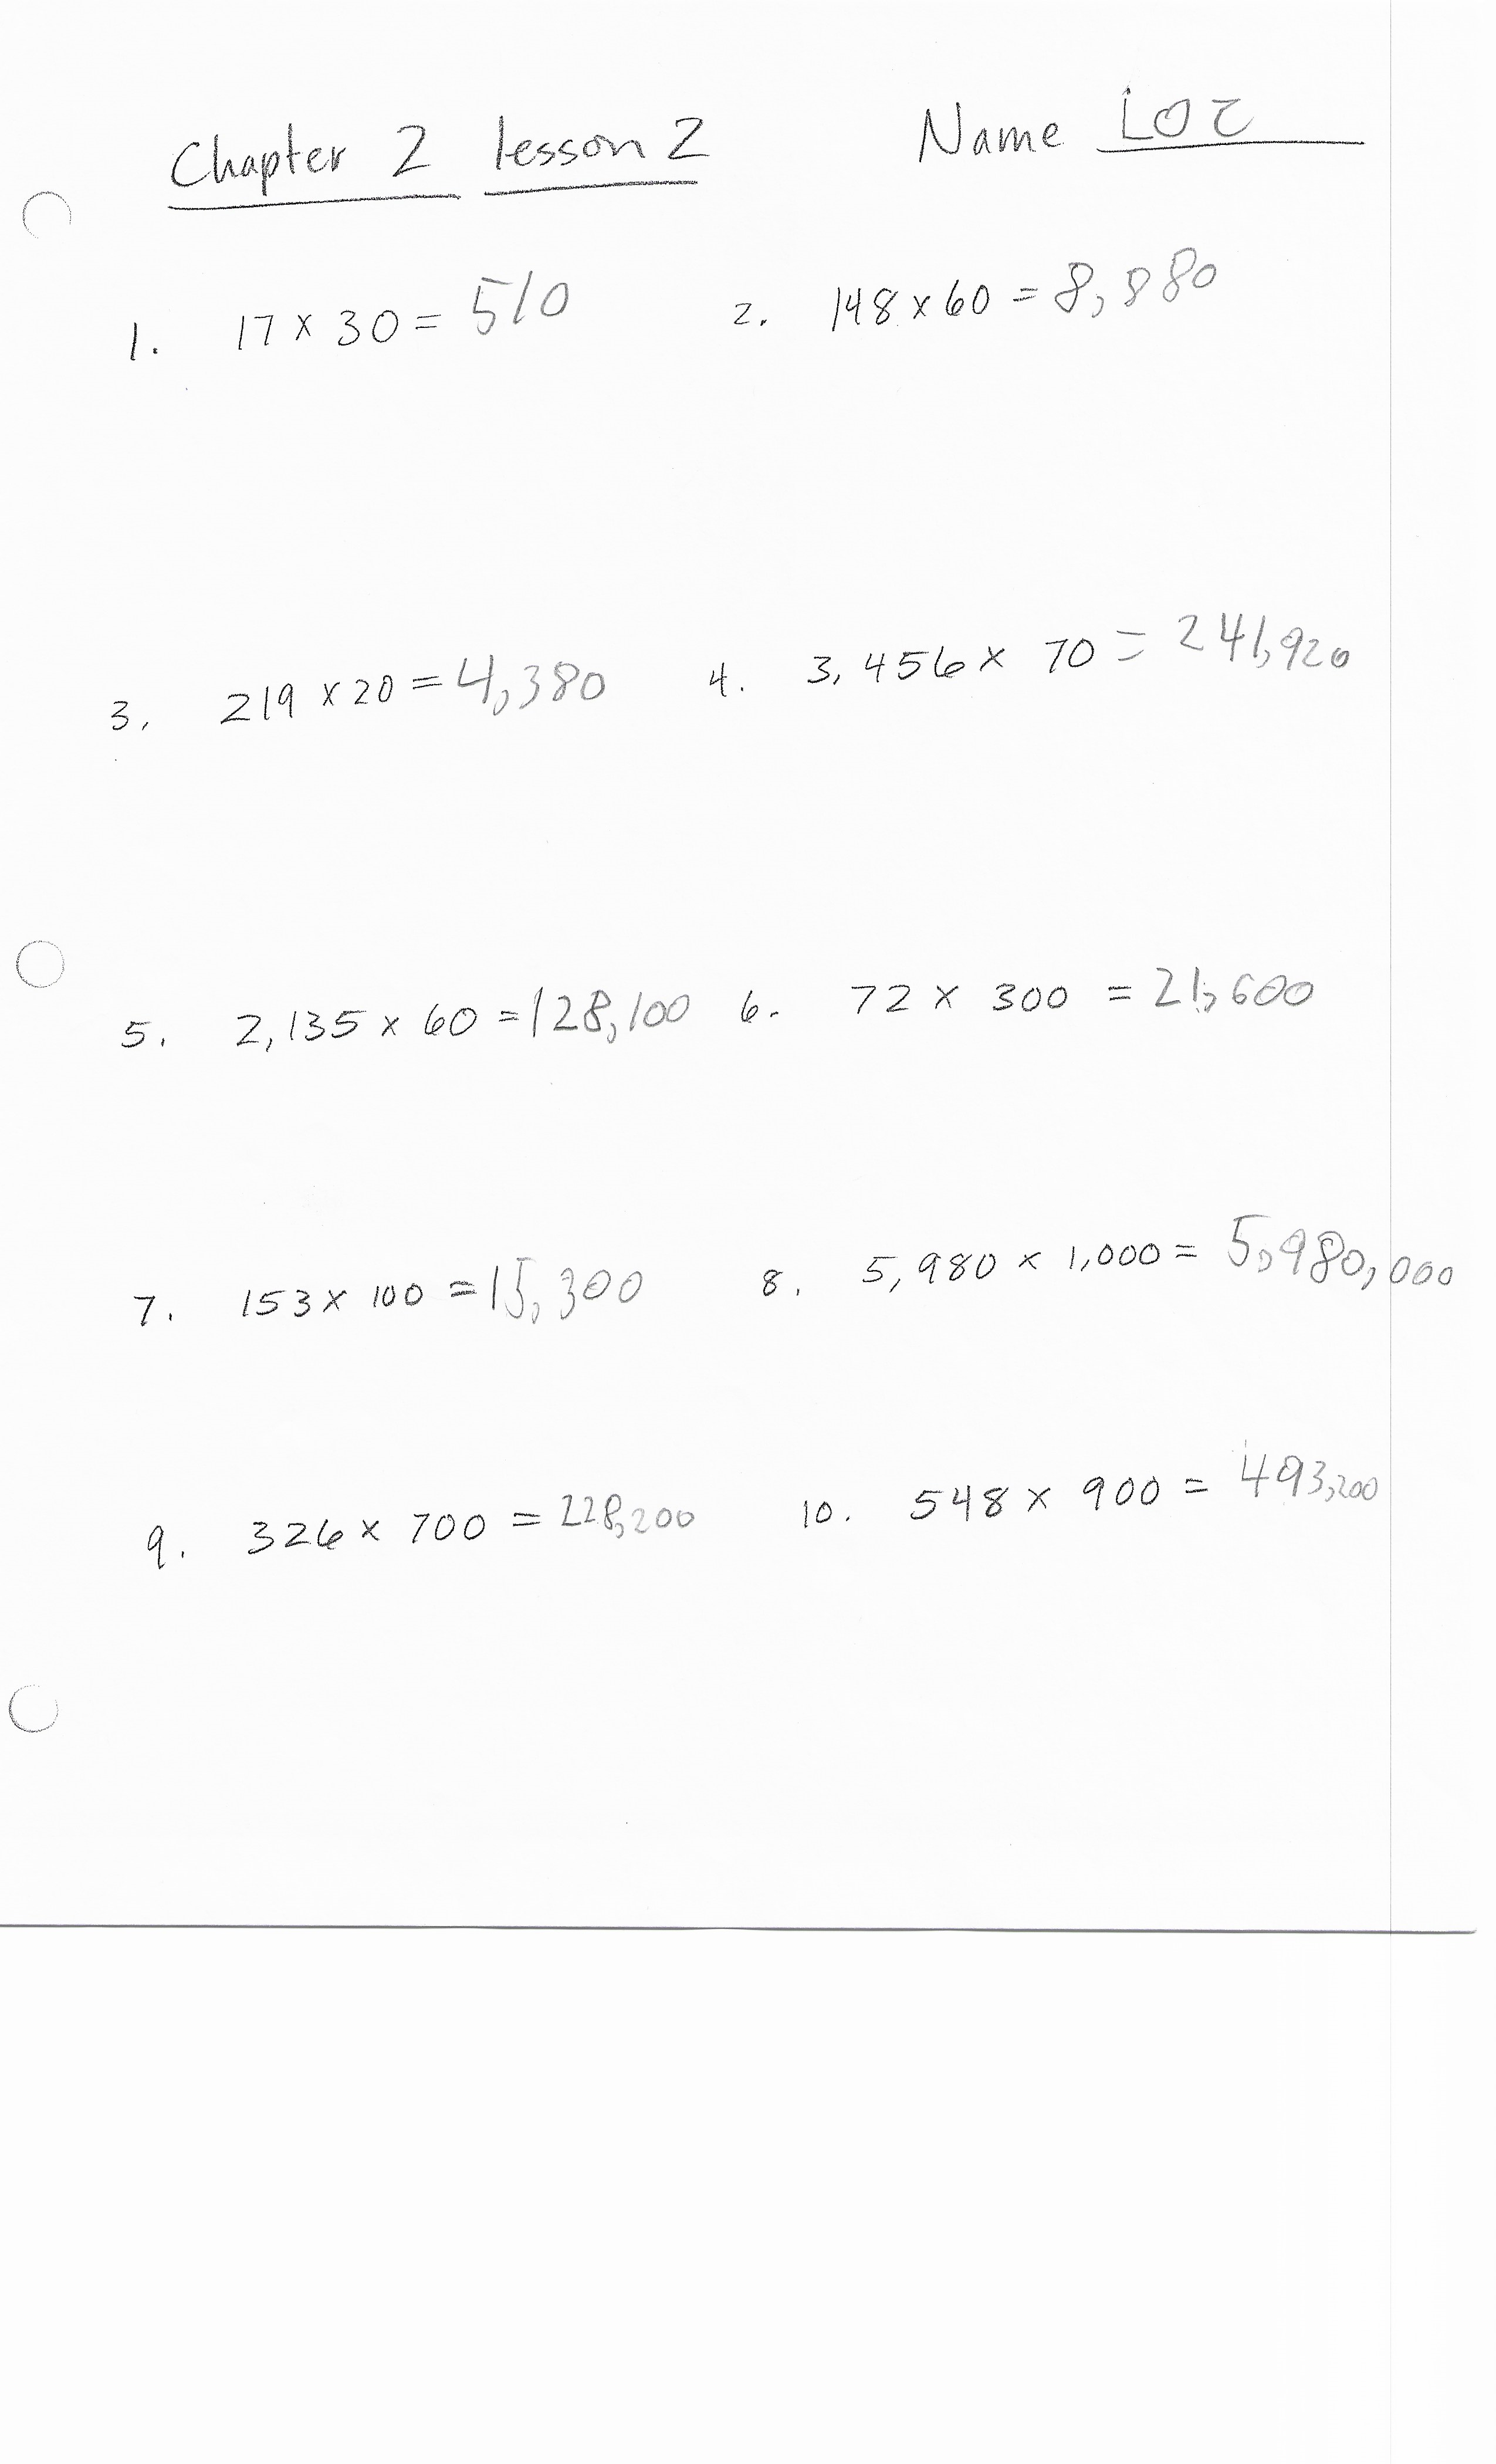 Chapter 2 lesson 2 Name LOC
1. 17 x 30 = 510 2. 148 x 60 = 8,880
3. 219 x 20 = 4,380 4. 3,456 x 70 = 241,920
5. 2,135 x 60 = 128,100 6. 72 x 300 = 21,600
7. 153 x 100 = 15,300 8. 5,980 x 1,000 = 5,980,000
9. 326 x 700 = 228,200 10. 548 x 900 = 493,200